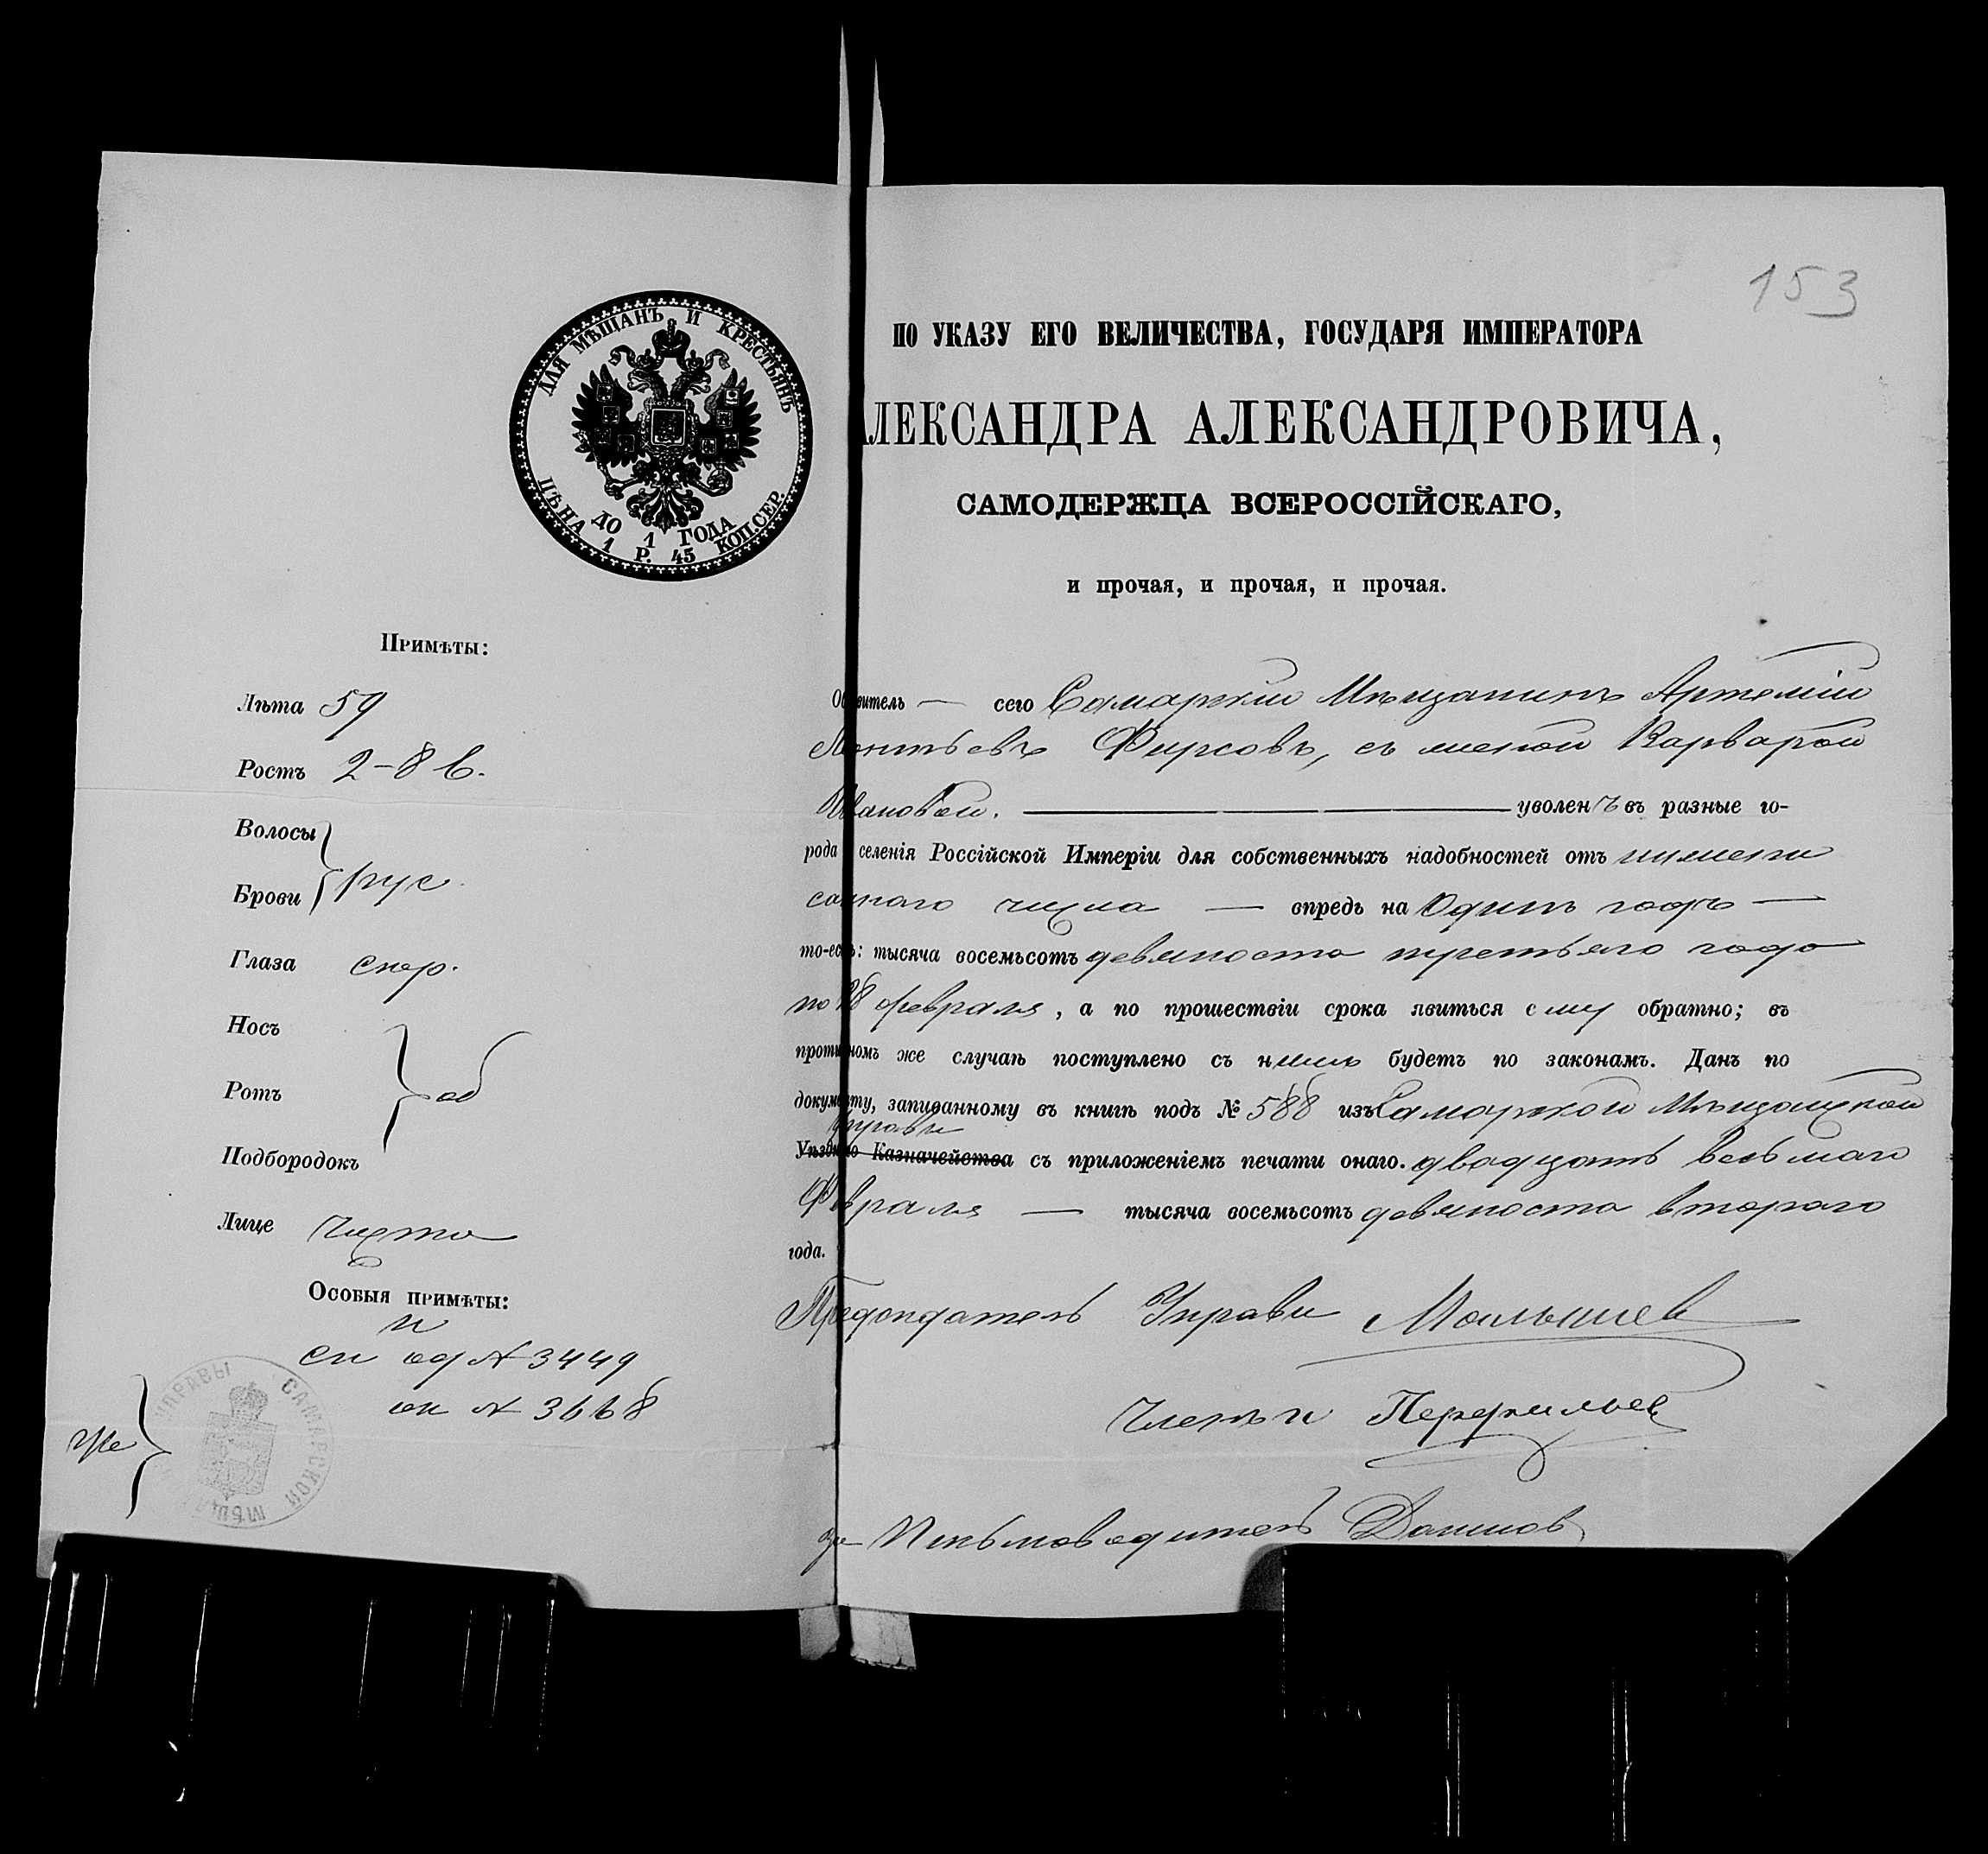 153
ДЛЯ МѢЩАНЪ И КРЕСТЬЯНЪ
ДО 1 ГОДА
ЦѢНА 1 Р. 45 КОП. СЕР.
Примѣты:
Лѣта 59
Ростъ 2-8 в.
Волосы
Брови } рус.
Глаза сѣр.
Носъ
Ротъ } об
Подбородокъ
Лице Чисто
Особыя примѣты:
№ 3449
№ 3668
УПРАВЫ САМАРСКОЙ МѢЩ
ПО УКАЗУ ЕГО ВЕЛИЧЕСТВА, ГОСУДАРЯ ИМПЕРАТОРА
ЛЕКСАНДРА АЛЕКСАНДРОВИЧА,
САМОДЕРЖЦА ВСЕРОССІЙСКАГО,
и прочая, и прочая, и прочая.
Объявитель — сего Самарскій Мѣщанинъ Артемій
Леонтьевъ Фирсовъ, съ женой Варварой
Ивановой. — уволенъ въ разные го-
рода селенія Россійской Имперіи для собственныхъ надобностей отъ нижепи
саннаго числа — впредь на Одинъ годъ —
то-есть: тысяча восемьсотъ девяноста третьяго года
по 28 февраля, а по прошествіи срока явиться ему обратно; въ
противномъ же случаѣ поступлено съ нимъ будетъ по законамъ. Данъ по
документу, записанному въ книгѣ подъ № 588 изъ Самарской Мѣщанской
Управы
Уѣзднаго Казначейства съ приложеніемъ печати онаго. двадцать восьмаго
Февраля — тысяча восемьсотъ девяноста втораго
года.
Предсѣдатель Управы Малышев
Члены Перфильев
За Письмоводитель